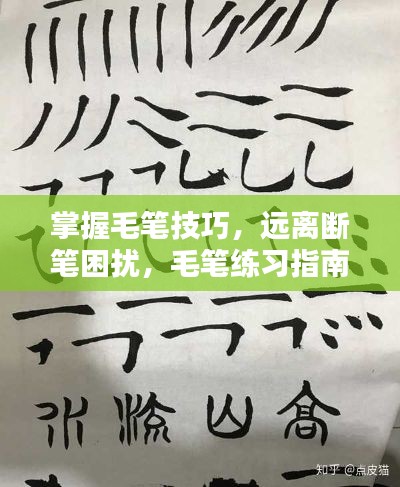 掌握毛笔技巧，远离断
笔困扰，毛笔练习指南
流 山 高
知乎 @点皮猫